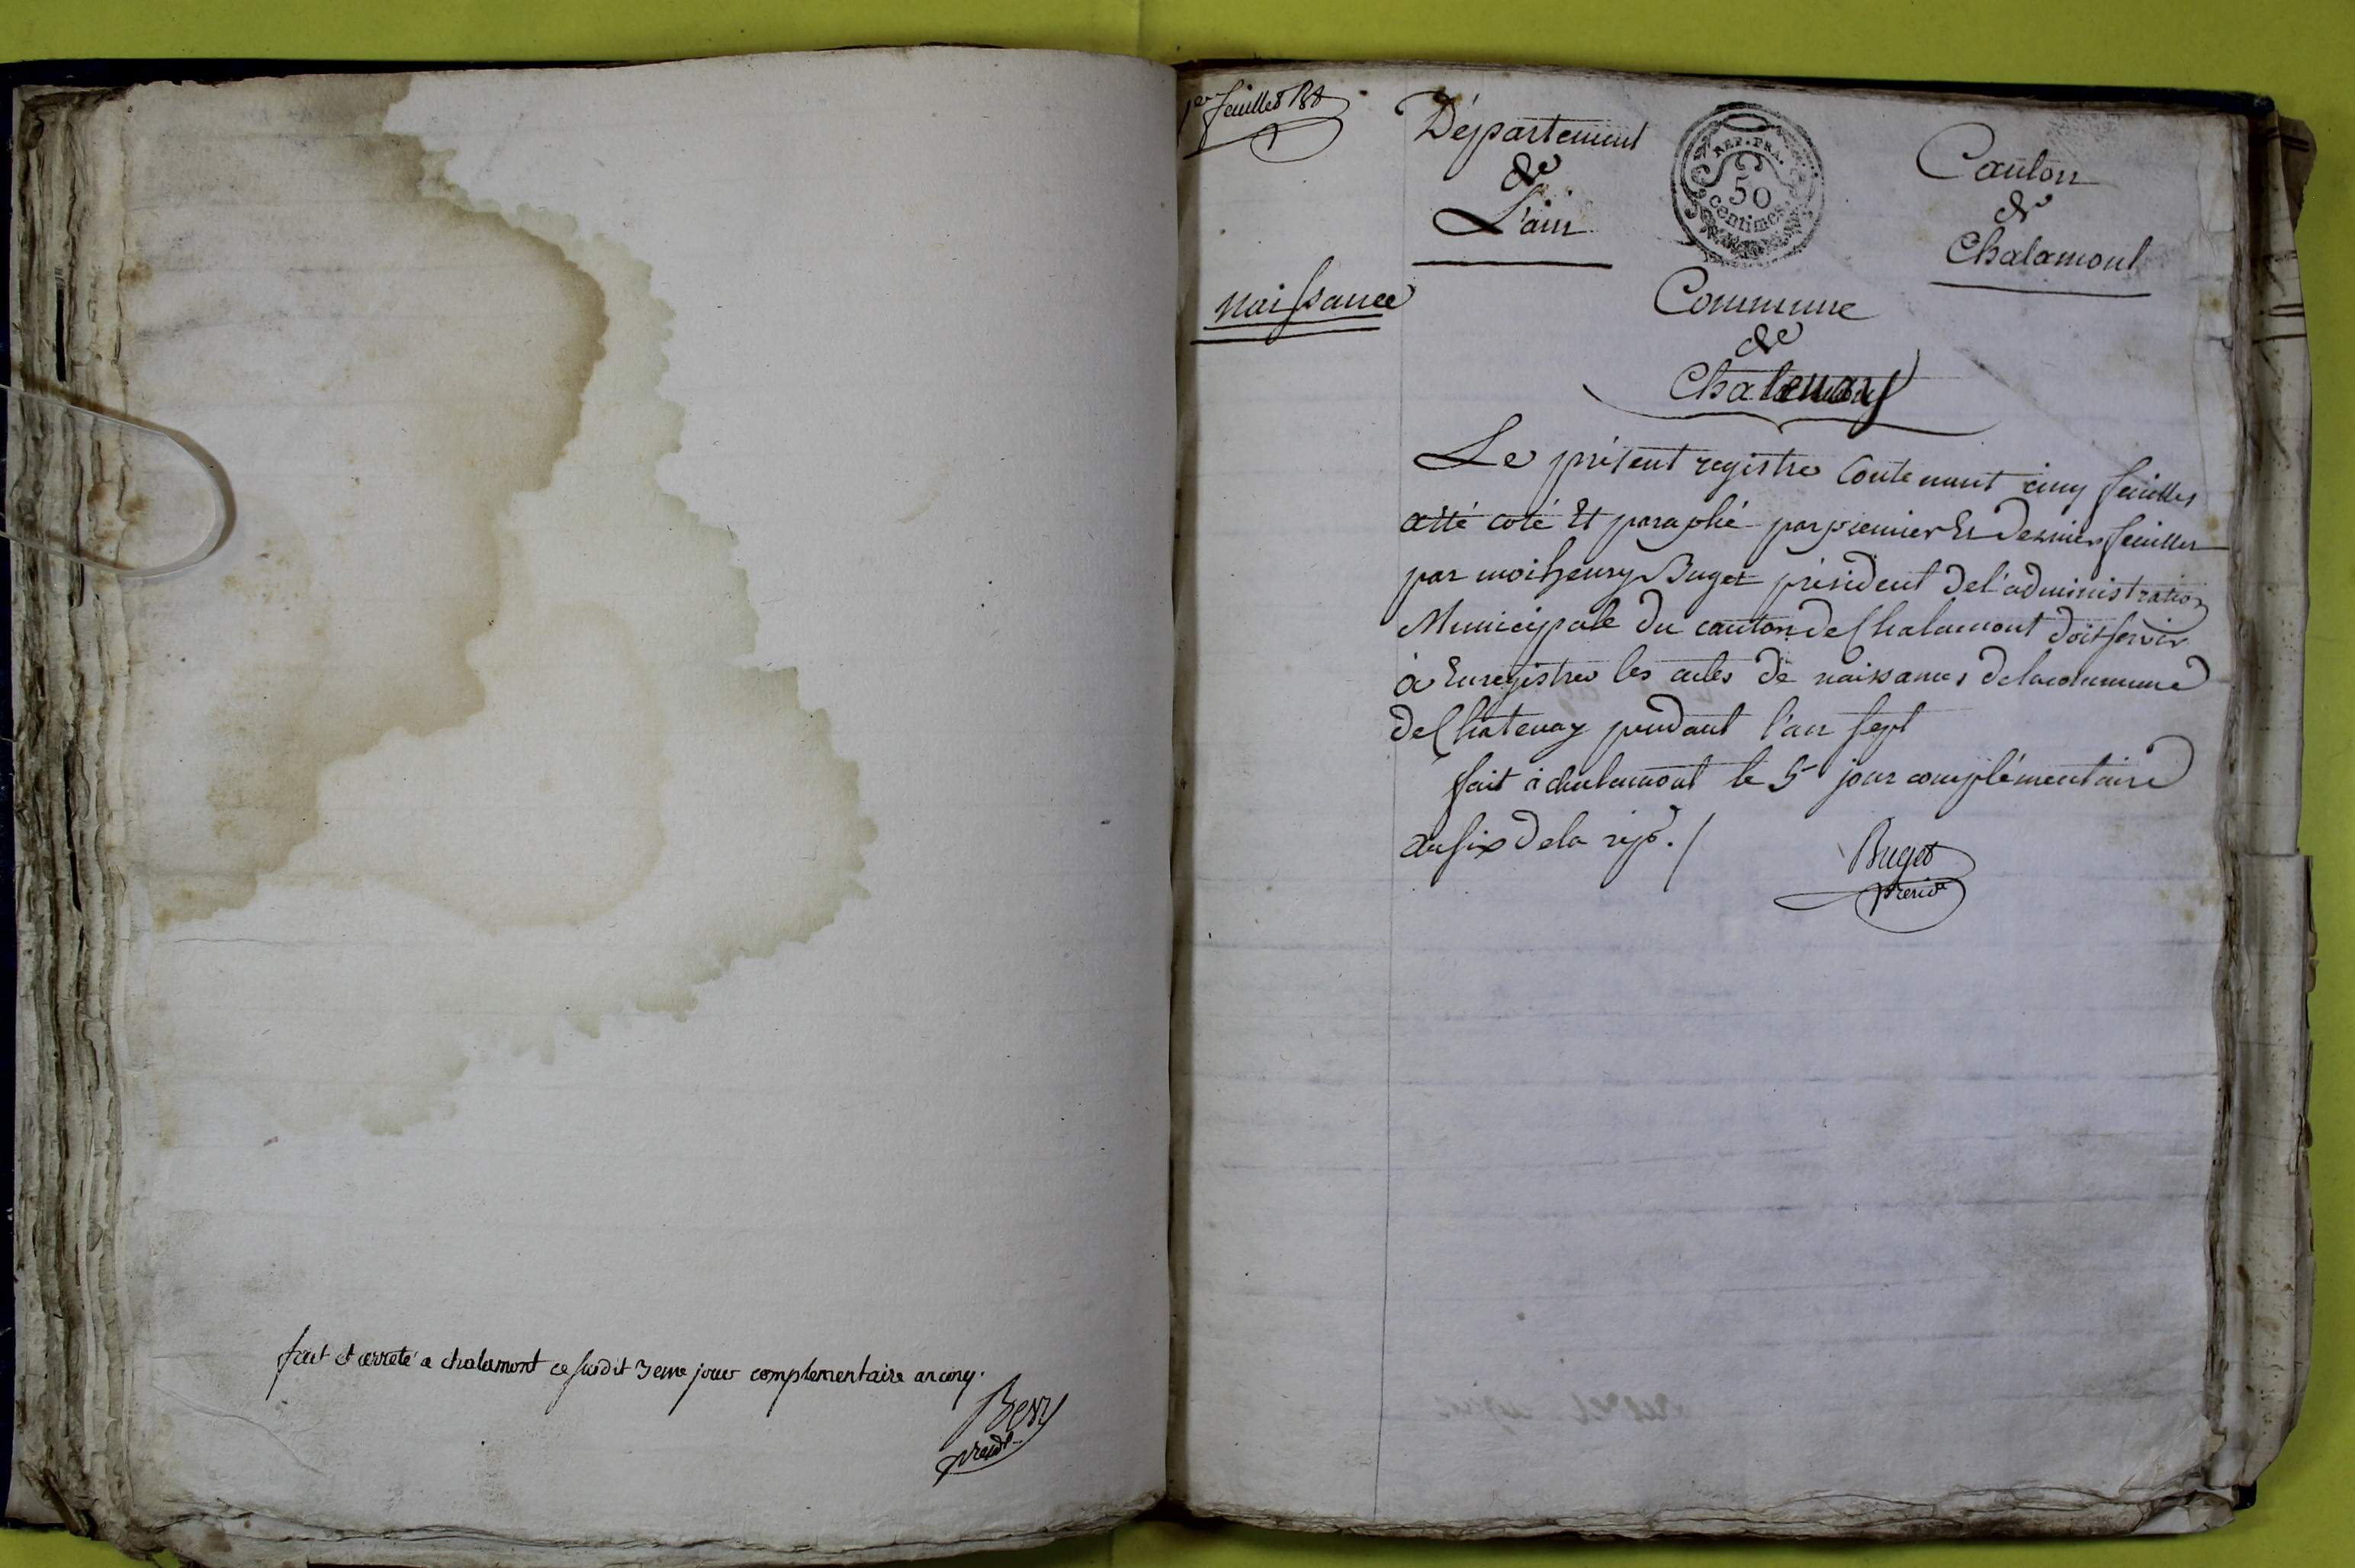 fait et arreté a chalamont ce susdit 3eme jour complementaire an cinq.
presdt
1er feuillet
Département
de
L'ain
REP. FRA.
50
centimes.
Canton
de
Chalamont
naissance
Commune
de
Chatenay
Le présent registre Contenant cinq feuilles
a été coté Et paraphé par premier Et Dernier feuillet
par moi henry Buget président de l'administration
Municipale du canton de Chalamont doit servir
à Enregistrer les actes de naissances de la commune
de Chatenay pendant l'an sept
fait à chalamont le 5e jour complémentaire
an six de la rep. /
Buget
presidt